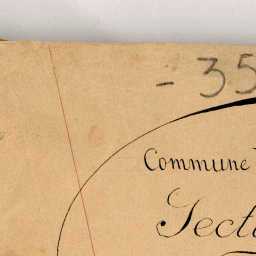 - 35
Commune
Secti